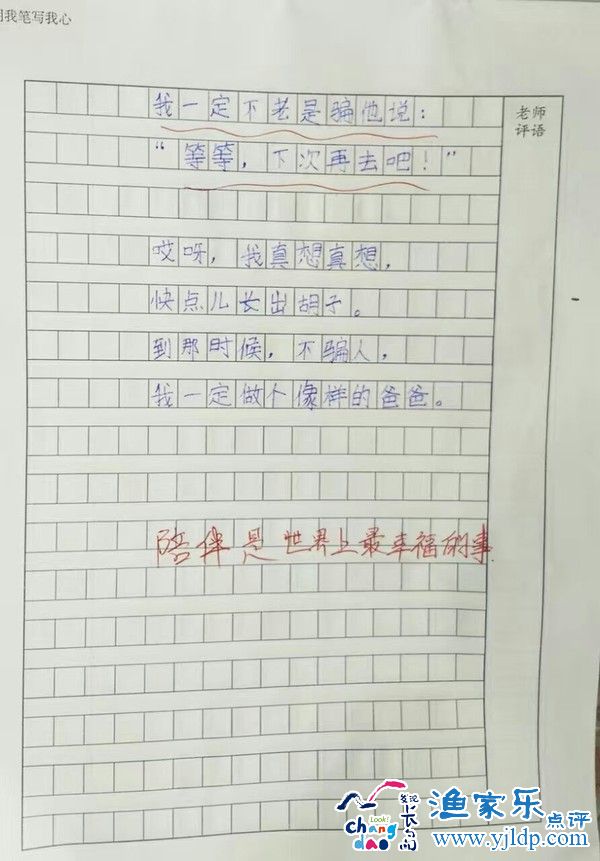 用我笔写我心
老师
评语
我一定不老是骗他说：
“等等，下次再去吧！”
哎呀，我真想真想，
快点儿长出胡子。
到那时候，不骗人，
我一定做个像样的爸爸。
陪伴是世界上最幸福的事
Look!
chang dao
发现
长岛
渔家乐点评
www.yjldp.com